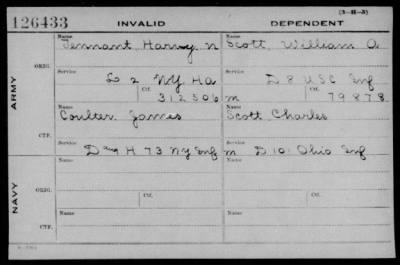 (3-H-3)
126433 INVALID DEPENDENT
Name Name
Tennant Harvey N Scott, William O
ORIG.
Service Service
L 2 NY HA D 8 USC Inf
Ctf. Ctf.
312506 m 79878
ARMY
Name Name
Coulter James Scott Charles
CTF.
Service Service
H 73 NY Inf m D 10 Ohio Inf
Name Name
ORIG.
Service Ctf. Service Ctf.
NAVY
Name Name
CTF.